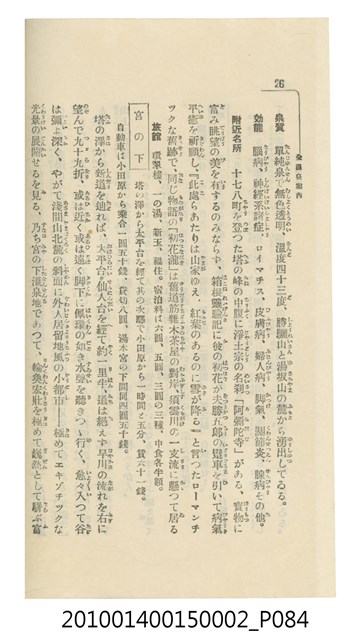 26
全溫泉案内
泉質 單純泉、無色透明、溫度四十三度、勝驪山と湯坂山の麓から湧出してゐる。
効能 腦病、神經系諸症、ロイマチス、皮膚病、婦人病、脚氣、關節炎、腺病その他。
附近名所 十七八町を登つた塔の峰の中腹に淨土宗の名刹『阿彌陀寺』がある、寶物に
富み眺望の美を有するのみならず、箱根靈驗記に彼の初花が夫勝五郎の躄車を引いて病氣
平癒を祈願し、『此處らあたりは山家ゆえ、紅葉のあるのに雪が降る』と言つたローマンチ
ツクな舊跡で、同じ物語の『初花瀧』は舊道筋雜木茶屋の對岸、須雲川の一支流に懸つて居る
旅舘 環翠樓、一の湯、新玉、福住。宿泊料は六圓、五圓、三圓の三種、中食各半額。
宮の下 塔の澤から太平台を經て其の次驛で小田原から一時間と五分、賃六十一錢。
自動車は小田原から乘合一圓五十錢、貸切八圓、湯本宮の下間同四圓五十錢。
塔の澤から新道を辿れば、太平台、仙人台を經て約一里半、道は絕えず早川の流れを右に
望んで九十九折、或は近く或は遠く脚下に佩環の如き水聲を聽きつゝ行く、愈々入つて谷
は彌よ深く、やがて淺間山北麓の斜面に外人居留地風の小都市――極めてエキゾチツクな
光景の展開せるを見る、乃ち宮の下溫泉地であつて、輪奐宏壯を極めて巍然として聳ふ富
201001400150002_P084